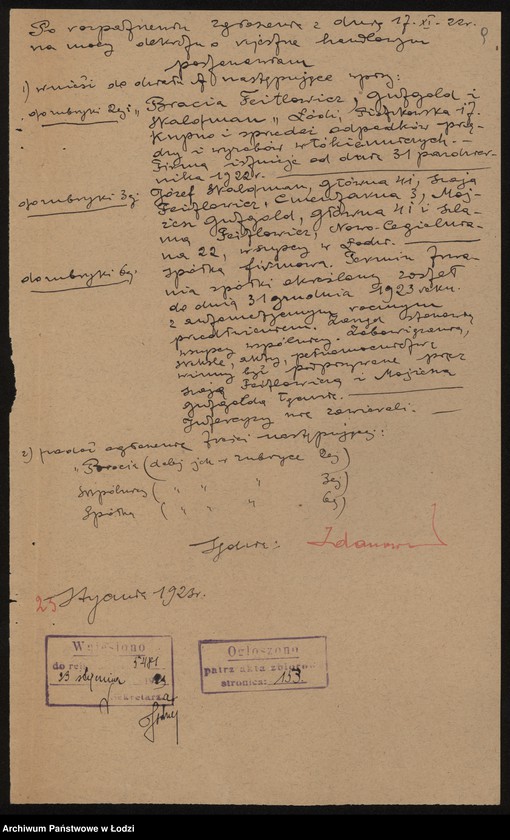 Po rozpoznaniu zgłoszenia z dnia 17-XI-22r.
na mocy dekretu o rejestrze handlowym
postanawiam
1) wnieść do działu A następujące wpisy:
do rubryki 2ej „Bracia Fejtlowicz, Gutgold i
Wald­man" Łódź, Piotrkowska 17.
Kupno i sprzedaż odpadków przę-
dzy i wyrobów włókienniczych. —
Firma istnieje od dnia 31 paździer-
nika 1922r.
do rubryki 3ej Józef, Główna 41, Szaja
Fejtlowicz, Cmentarna 3, Moj-
żesz Gutgold, Główna 41 i Szla-
ma Fejtlowicz, Nowo-Cegielnia-
na 22, wszyscy w Łodzi.
do rubryki 6ej. Spółka firmowa. Termin trwa-
nia spółki określony został
do dnia 31 grudnia 1923 roku.
z automatycznym rocznym
przedłużeniem. Zarząd stanowią
wszyscy wspólnicy. Zobowiązania,
weksle, akty, pełnomocnictwa
winny być podpisywane przez
Szaję Fejtlowicza i Mojżesza
Gutgolda łącznie.
Intercyzy nie zawierali. —
2) podać ogłoszenie treści następującej:
„Bracia (dalej jak w rubryce 2ej)
Wspólnicy ( „ „ „ 3ej)
Spółka ( „ „ „ 6ej)
Sędzia:
23 Stycznia 1923r.
Wniesiono
do rej. 5481
23 stycznia 1923
Sekretarz
Ogłoszono
patrz akta zbiorow.
stronica: 153.
Archiwum Państwowe w Łodzi